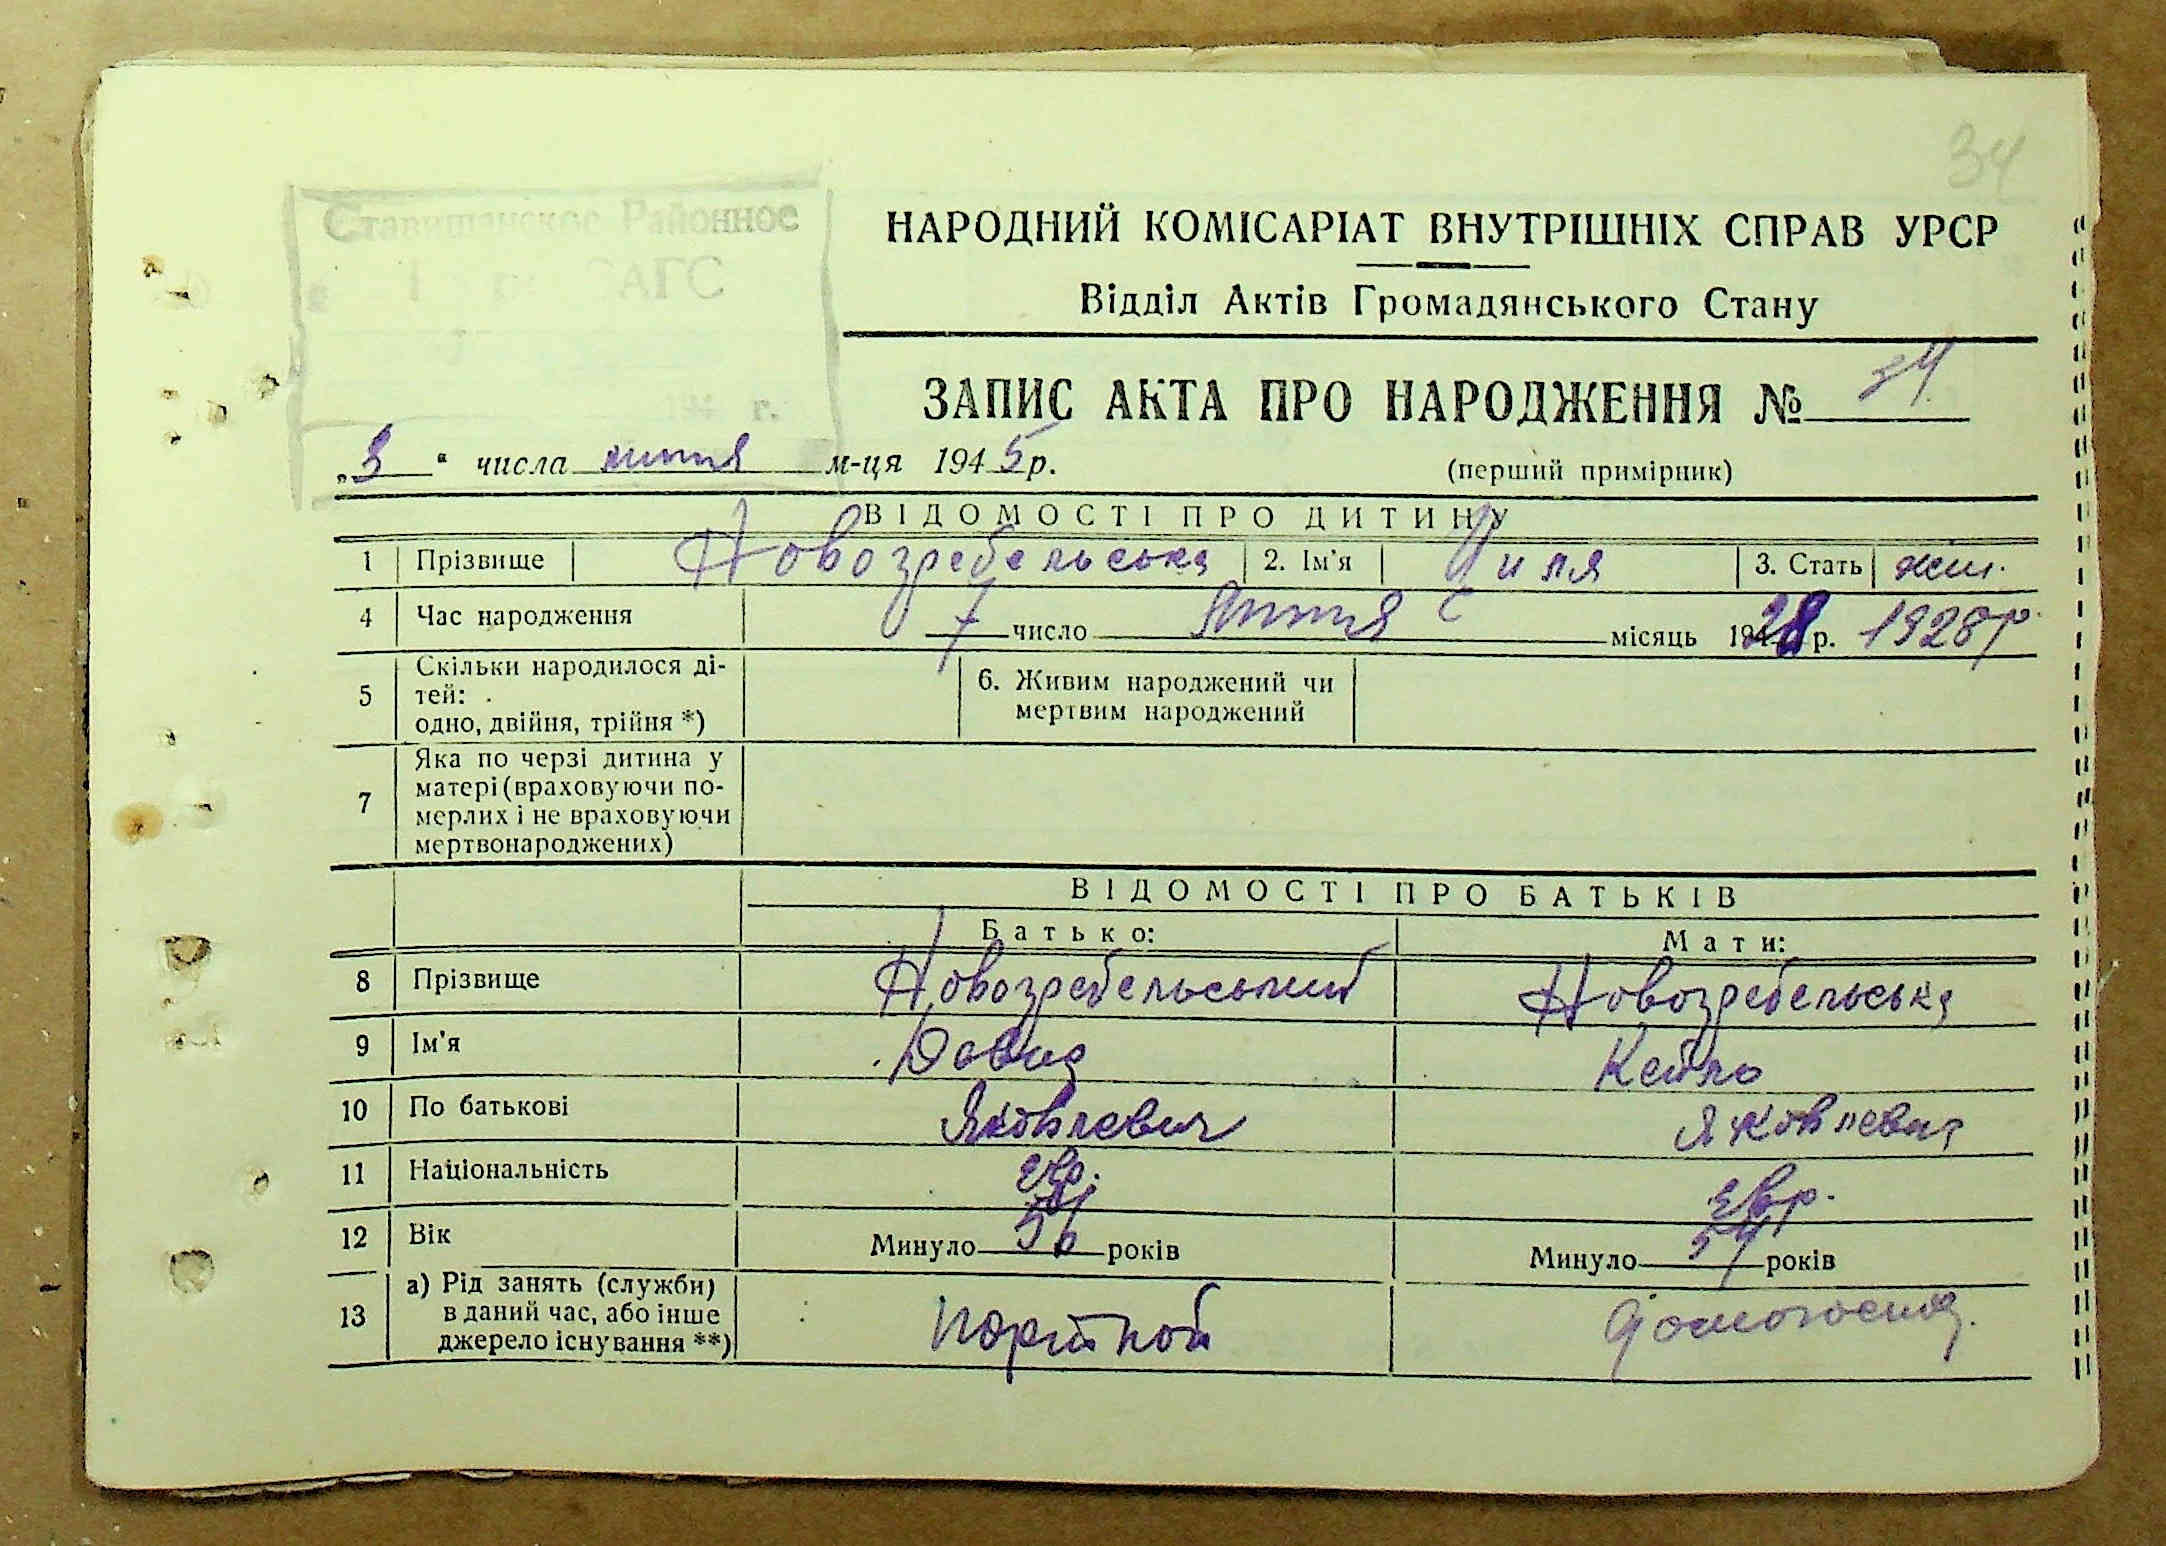 34
Ставищанское Районное
ЗАГС
194 г.
НАРОДНИЙ КОМІСАРІАТ ВНУТРІШНІХ СПРАВ УРСР
Відділ Актів Громадянського Стану
ЗАПИС АКТА ПРО НАРОДЖЕННЯ № 34
„3“ числа липня м-ця 1945 р.
(перший примірник)
ВІДОМОСТІ ПРО ДИТИНУ
1 Прізвище Новогребельська 2. Ім'я Циля 3. Стать жін.
4 Час народження 7 число липня місяць 1928 р. 1928 р.
5 Скільки народилося ді-
тей:
одно, двійня, трійня *)
6. Живим народжений чи
мертвим народжений
7 Яка по черзі дитина у
матері (враховуючи по-
мерлих і не враховуючи
мертвонароджених)
ВІДОМОСТІ ПРО БАТЬКІВ
Батько: Мати:
8 Прізвище Новогребельський Новогребельська
9 Ім'я Давид Кейла
10 По батькові Яковлевич Яковлевна
11 Національність евр. евр.
12 Вік Минуло 56 років Минуло 54 років
13 а) Рід занять (служби)
в даний час, або інше
джерело існування **)
портной домогосп.